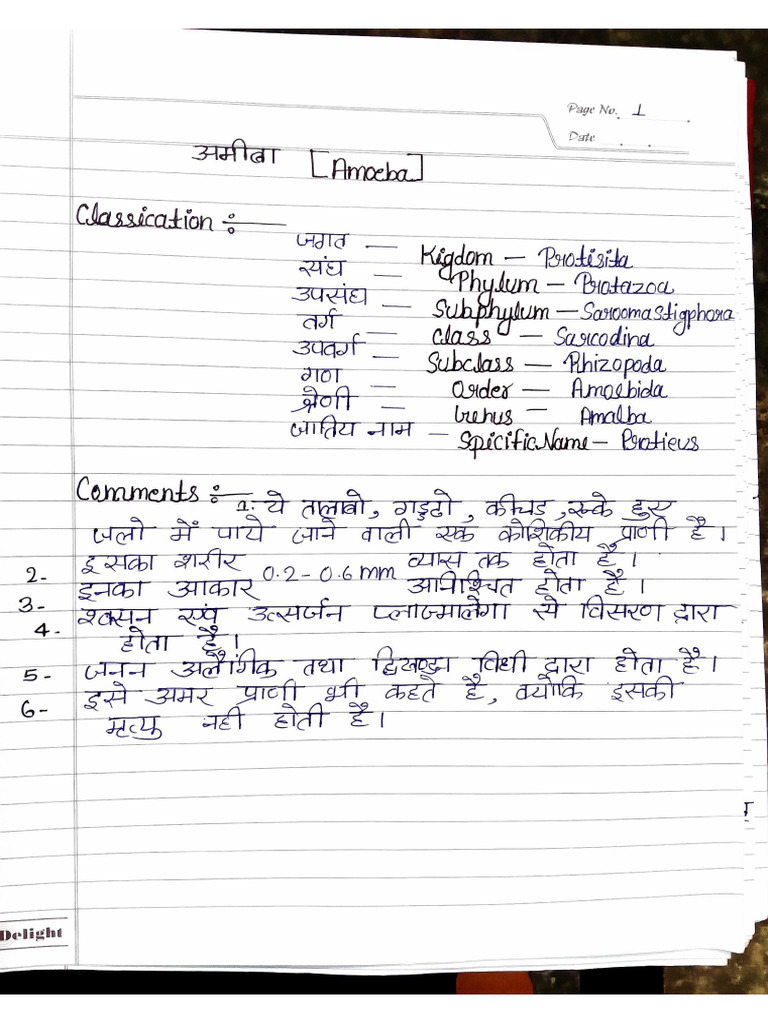 Page No. 1
Date
अमीबा [Amoeba]
Classication :-
जगत — Kigdom — Protisita
संघ — Phylum — Protazoa
उपसंघ — Subphylum — Saroomastigphora
वर्ग — Class — Sarcodina
उपवर्ग — Subclass — Rhizopoda
गण — Order — Amoebida
श्रेणी — Genus — Amalba
जातिय नाम — Spicific Name — Protieus
Comments :- 1: ये तालाबो, गड्ढो, कीचड, रूके हुए
जलो में पाये जाने वाली एक कोशिकीय प्राणी है।
2- इसका शरीर 0.2-0.6mm व्यास तक होता है।
3- इनका आकार अनिश्चित होता है।
4- श्वसन एवं उत्सर्जन प्लाज्मालेमा से विसरण द्वारा
होता है।
5- जनन अलैंगिक तथा द्विखण्डन विधी द्वारा होता है।
6- इसे अमर प्राणी भी कहते है, क्योकि इसकी
मृत्यु नही होती है।
Delight